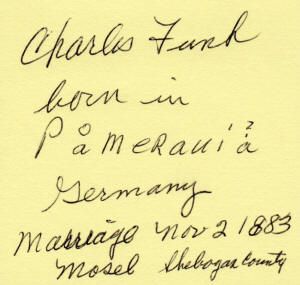 Charles Funk
born in
Påmeraniå
Germany
Marriage Nov 2 1883
Mosel Shebogan County